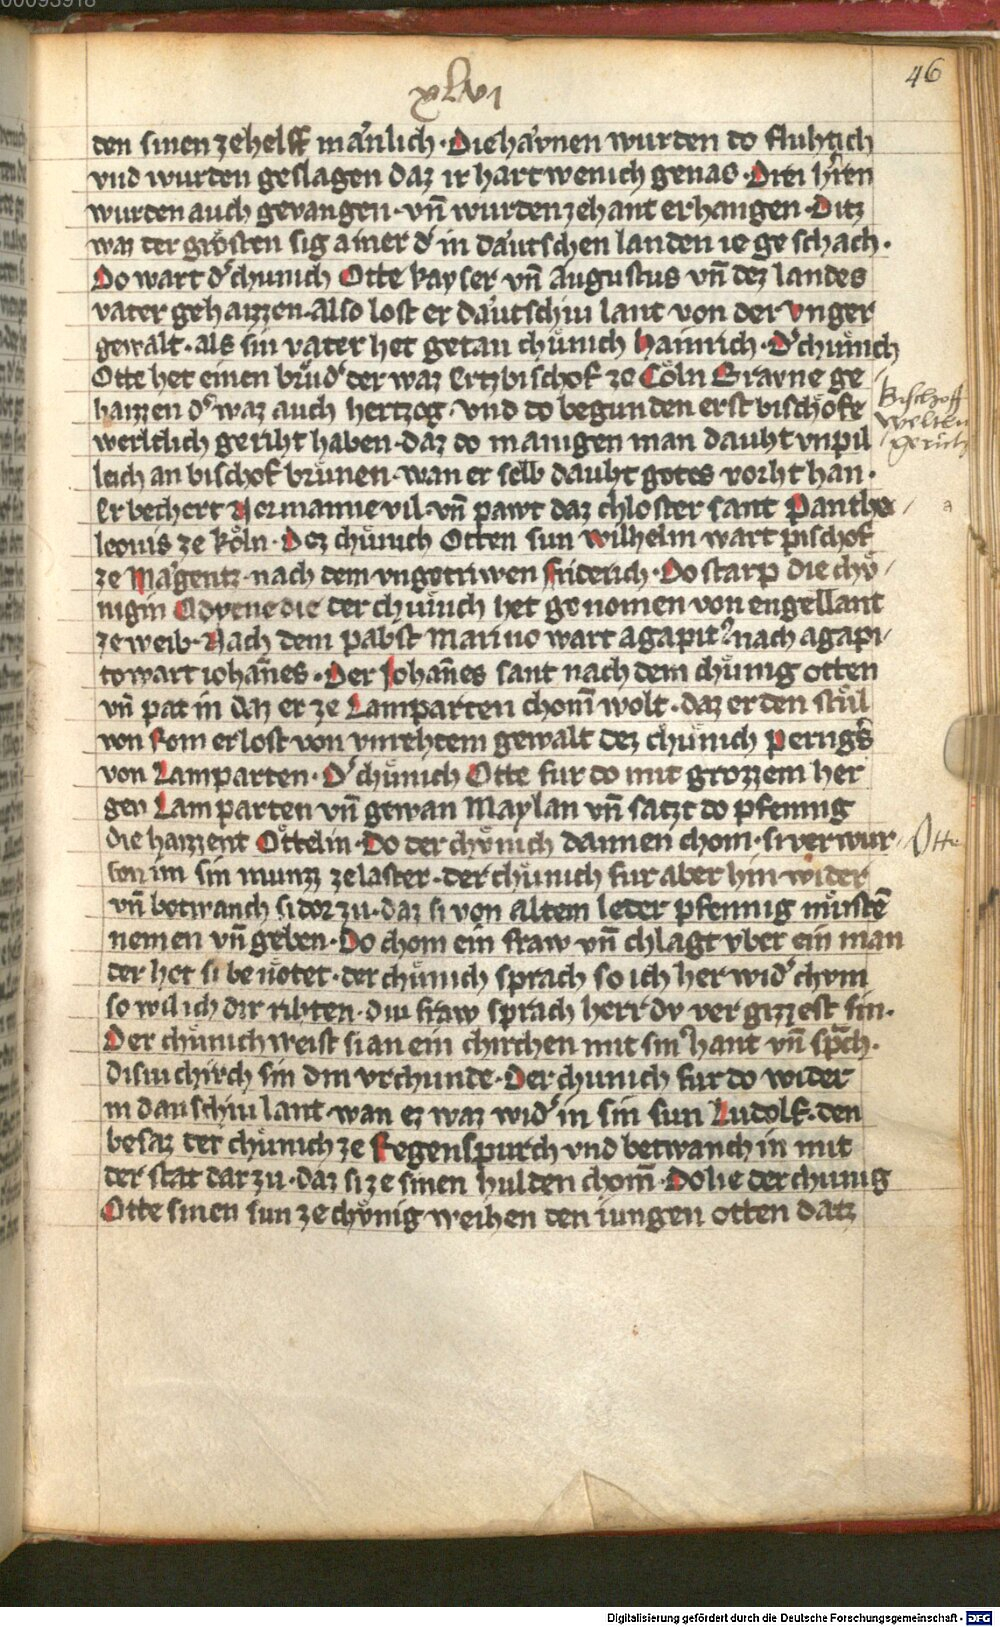 00093918
xlvi
46
den sinen ze helff männlich · Die häynen wurden do fluhtich
vnd wurden geslagen daz ir hart wenich genas · Drei h͛ren
wurden auch gevangen · vn̄ wurden zehant erhangen · Ditz
waz der grösten sig ainer d͛ in däutschen landen ie geschach ·
Do wart d͛ chunich Otte kayser vn̄ augustus vn̄ dez landes
vater gehaizzen · also lost er däutschiu lant von der vnger
gewalt · als sin vater het getan chuͤnich Hainrich · D͛ chuͤnich
Otte het einen bruͦd͛ der waz Ertzbischof ze Coͤln Bravne ge
haizzen d͛ waz auch hertzog · vnd do begunden erst bischoͤfe
werltlich geriht haben · daz do manigen man dauht vnpil
leich an bischof bruͤnen · wan er selb dauht gotes vorht han ·
Er bechert Normannie vil · vn̄ pawt daz chloster sant Panthe
leonis ze koͤln · Dez chuͤnich Otten sun wilhelm wart pischof
ze Mägentz · nach dem vngetriwen friderich · Do starp die chuͤ
nigin die der chuͤnich het genomen von engellant
ze weib · Nach dem pabst Marino wart agapit⁹ nach agapi
to wart iohan̄es · Der Johan̄es sant nach dem chuͤnig otten
vn̄ pat in daz er ze Lamparten chom̄ wolt · daz er den stuͤl
von Rom erlost von vnrehtem gewalt dez chuͤnich perngs͛
von Lamparten · D͛ chuͤnich Otte fur do mit grozzem her
gen Lamparten vn̄ gewan Maylan vn̄ satzt do pfennig
die haizzent Oͤttelin · Do der chuͤnich dannen chom · si verwur
fen im sin munzz ze laster · der chuͤnich fur aber hin wider
vn̄ betwanch si dorzu · daz si von altem leder pfennig muͤstē
nemen vn̄ geben · Do chom ein fraw vn̄ chlagt vber ein man
der het si benoͤtet · der chuͤnich sprach so ich her wid͛ chvm
so wil ich dir rihten · diu fraw sprach herr dv vergizzest sin ·
Der chuͤnich weist si an ein chirchen mit sin͛ hant vn̄ sprach ·
disiu chirch sin din vrchunde · Der chunich fur do wider
in dauschiu lant · wan ez waz wid͛ in sin sun Ludolf · den
besaz der chuͤnich ze Regenspurch vnd betwanch in mit
der stat dar zu · daz si ze sinen hulden chom̄ · Do lie der chunig
Otte sinen sun ze chuͤnig weihen den iungen otten datz
Bischoff
welten
gericht
a
Otte
Digitalisierung gefördert durch die Deutsche Forschungsgemeinschaft · DFG